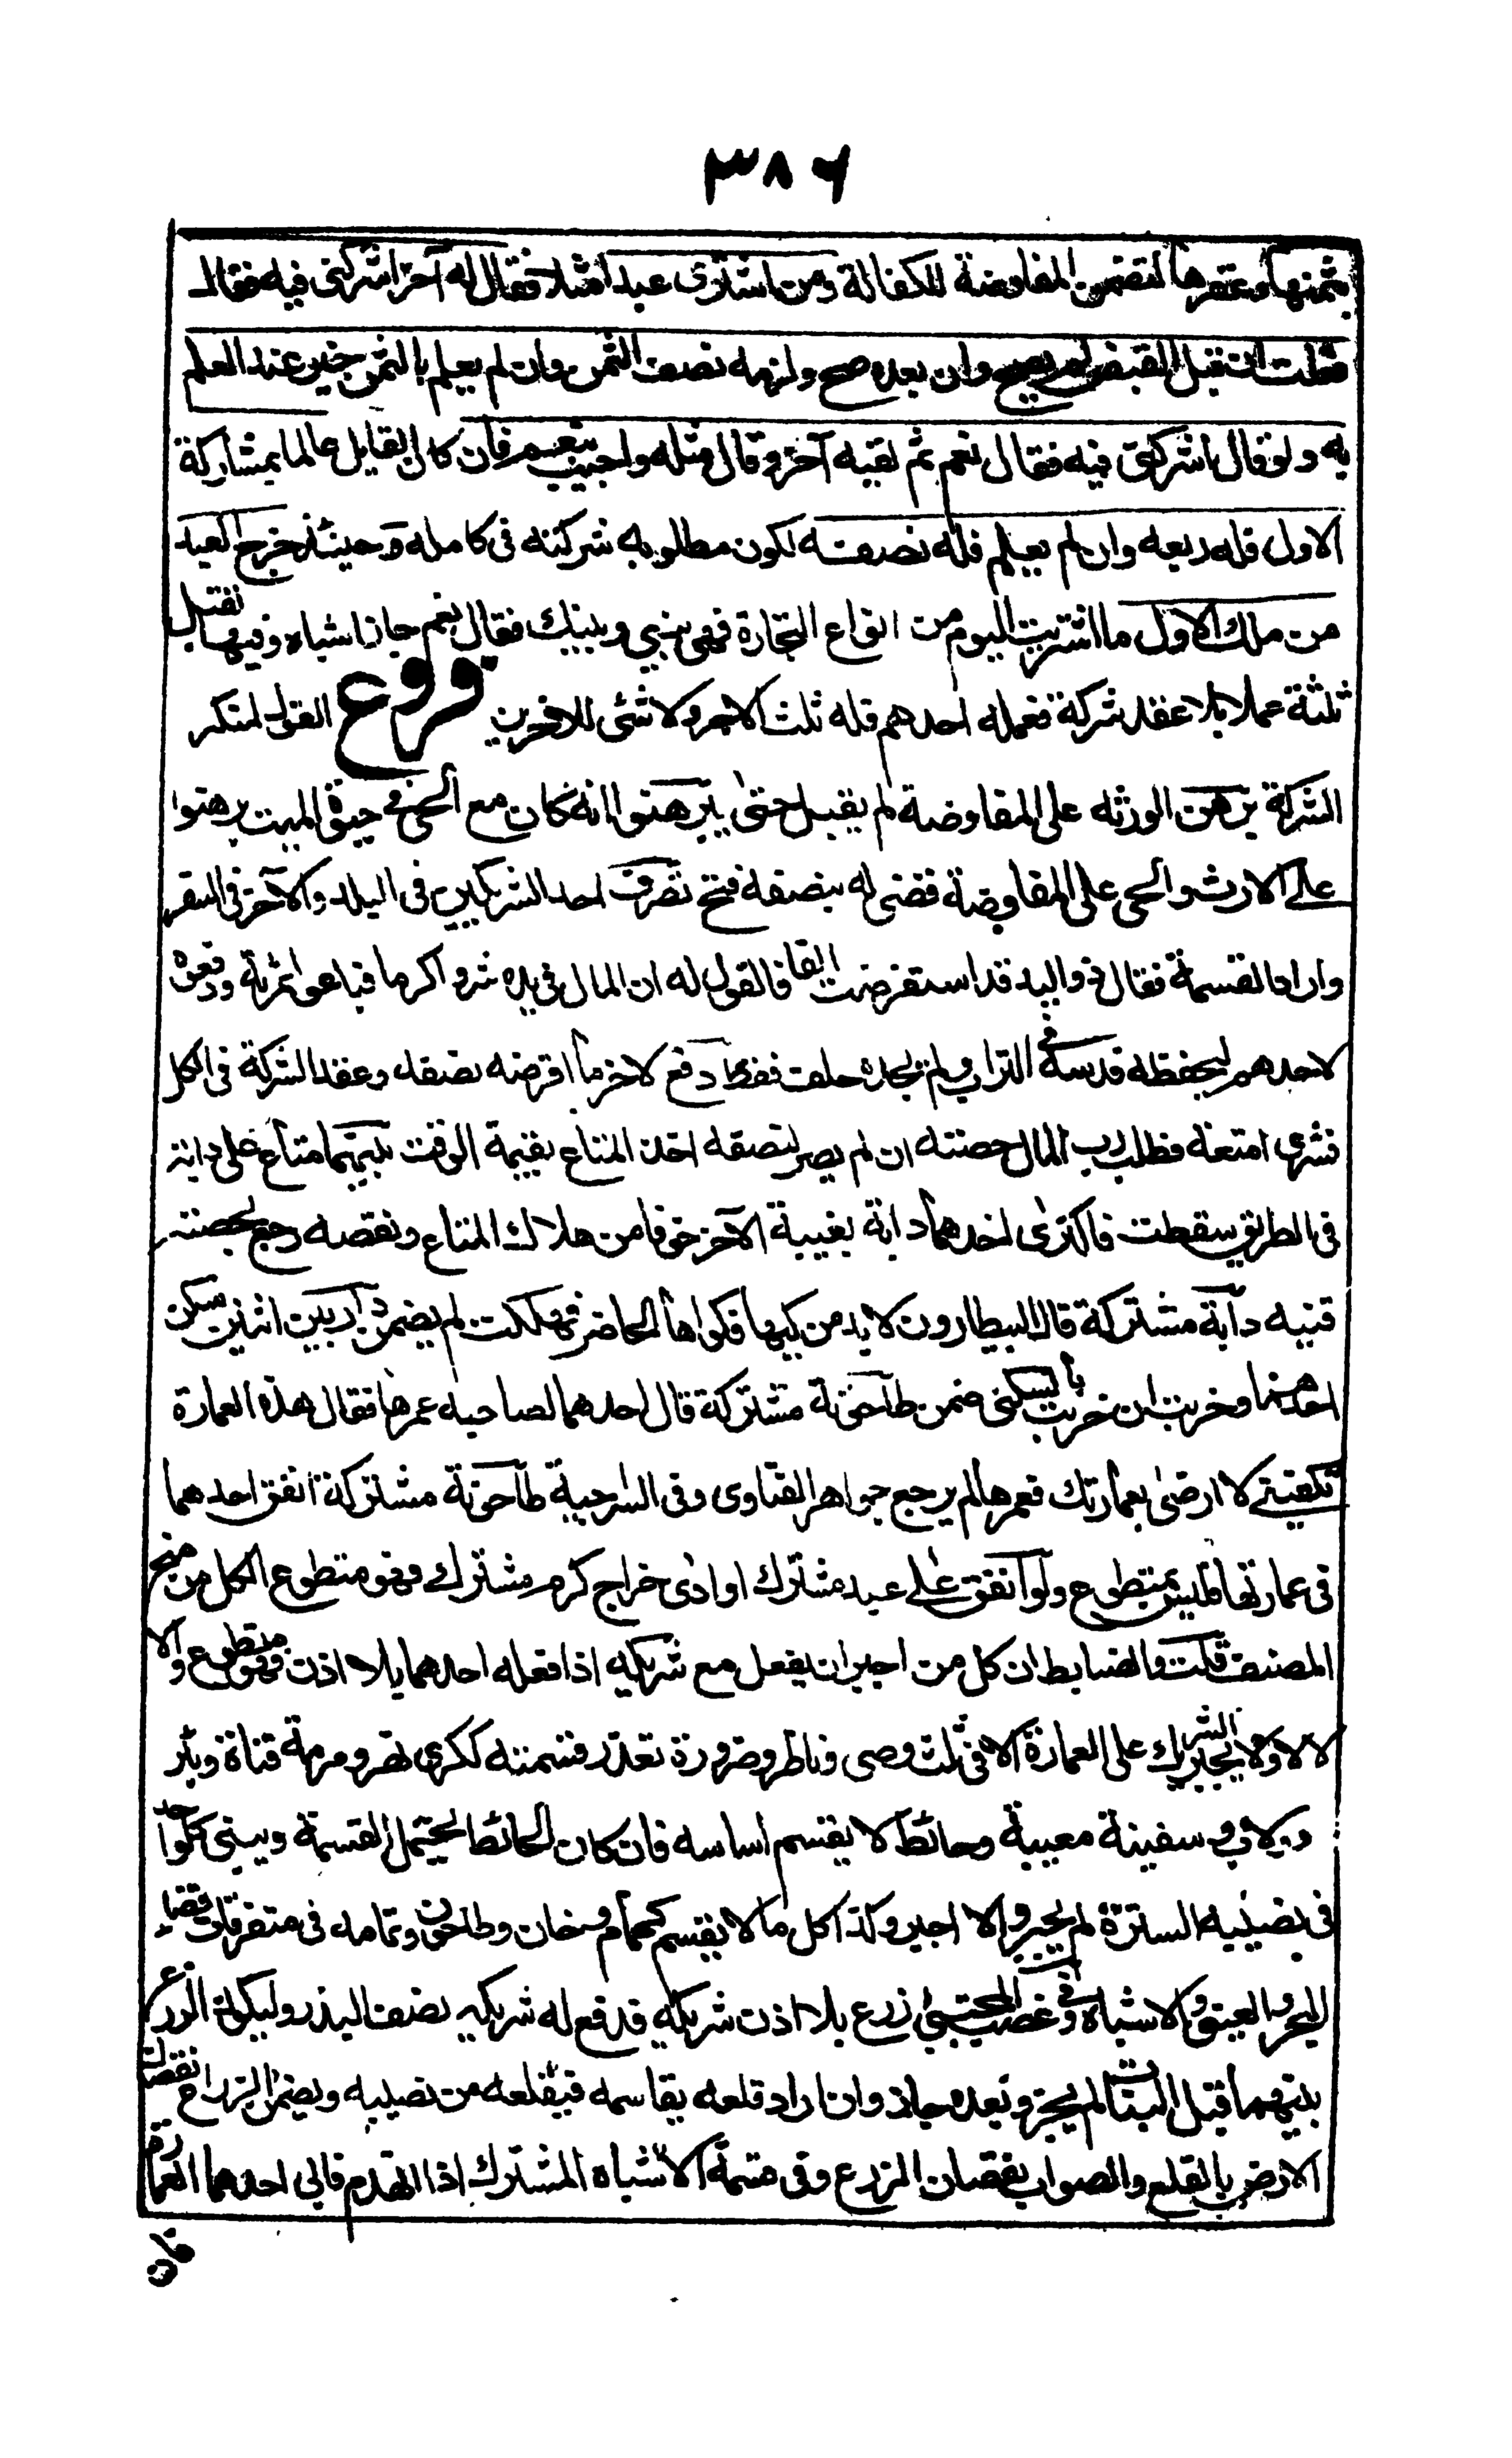 ٣٨٦
بثمنها وعقرها لتضمن المفاوضة للكفالة ومن اشترى عبدا مثلا فقال له آخر اشركنى فيه فقال
فعلت ان قبل القبض لم يصح وان بعده صح ولزمه نصف الثمن وان لم يعلم بالثمن خير عند العلم
به ولو قال اشركنى فيه فقال نعم ثم لقيه آخر وقال مثله واجيب بنعم فان كان القايل عالما بمشاركة
الاول فله ربعه وان لم يعلم فله نصفه لكون مطلوبه شركته فى كامله وحينئذ خرج العبد
من ملك الاول ما اشتريت اليوم من انواع التجارة فهى بينى وبينك فقال نعم جاز اشباه وفيها تقبل
ثلثة عملا بلا عقد شركة فعمله احدهم فله ثلث الاجر ولا شئ للاخرين فروع القول لمنكر
الشركة برهن الورثه على المفاوضة لم يقبل حتى يبرهنوا انه كان مع الحى فى حيوة الميت برهنوا
على الارث والحى على المفاوضة قضى له بنصفه فتح تصرف احد الشريكين فى البلد والآخر فى السفر
وارادا القسمة فقال ذو اليد قد استقرضت الفا فالقول له ان المال فى يده شروا كرما فباعوا ثمرته ودفعوه
لاحدهم ليحفظه فدسه فى التراب ولم يجده حلف فقط دفع لاخر مالا اقرضه نصفه وعقد الشركة فى الكل
فشرى امتعة فطلب رب المال حصته ان لم يصبر لنصفه اخذ المتاع بقيمة الوقت بينهما متاع على دابة
فى الطريق سقطت فاكترى احدهما دابة بغيبة الآخر خوفا من هلاك المتاع ونقصه رجع بحصته
قنيه دابة مشتركة قال البيطارون لا بد من كيها فكواها الحاضر فهلكت لم يضمن دار بين اثنين سكن
احدهما وخربت ان خربت بالسكنى ضمن طاحونة مشتركة قال احدهما لصاحبه عمرها فقال هذه العمارة
تكفينى لا ارضى بعمارتك فعمرها لم يرجع جواهر الفتاوى وفى السراجية طاحونة مشتركة انفق احدهما
فى عمارتها فليس بمتطوع ولو انفق على عبد مشترك او ادى خراج كرم مشترك فهو متطوع الكل من منح
المصنف قلت والضابط ان كل من اجبر ان يفعل مع شريكه اذا فعله احدهما بلا اذن فهو متطوع والا
لا ولا يجبر الشريك على العمارة الا فى ثلث وصى وناظر وضرورة تعذر قسمته ككرى نهر ومرمة قناة وبئر
ودولاب وسفينة معيبة وحائط لا يقسم اساسه فان كان الحائط يحتمل القسمة ويبنى كل واحد
فى نصيبه السترة لم يجبر والا اجبر وكذا كل ما لا يقسم كحمام وخان وطاحون وتمامه فى متفرقات قضاء
البحر والعينى والاشباه وفى غصب المجتبى زرع بلا اذن شريكه فدفع له شريكه نصف البذر وليكون الزرع
بينهما قبل النبات لم يجز وبعده جاز وان اراد قلعه يقاسمه فيقلعه من نصيبه ويضمن الزارع نقصان
الارض بالقلع والصواب نقصان الزرع وفى قسمة الاشباه المشترك اذا انهدم فابى احدهما العمارة